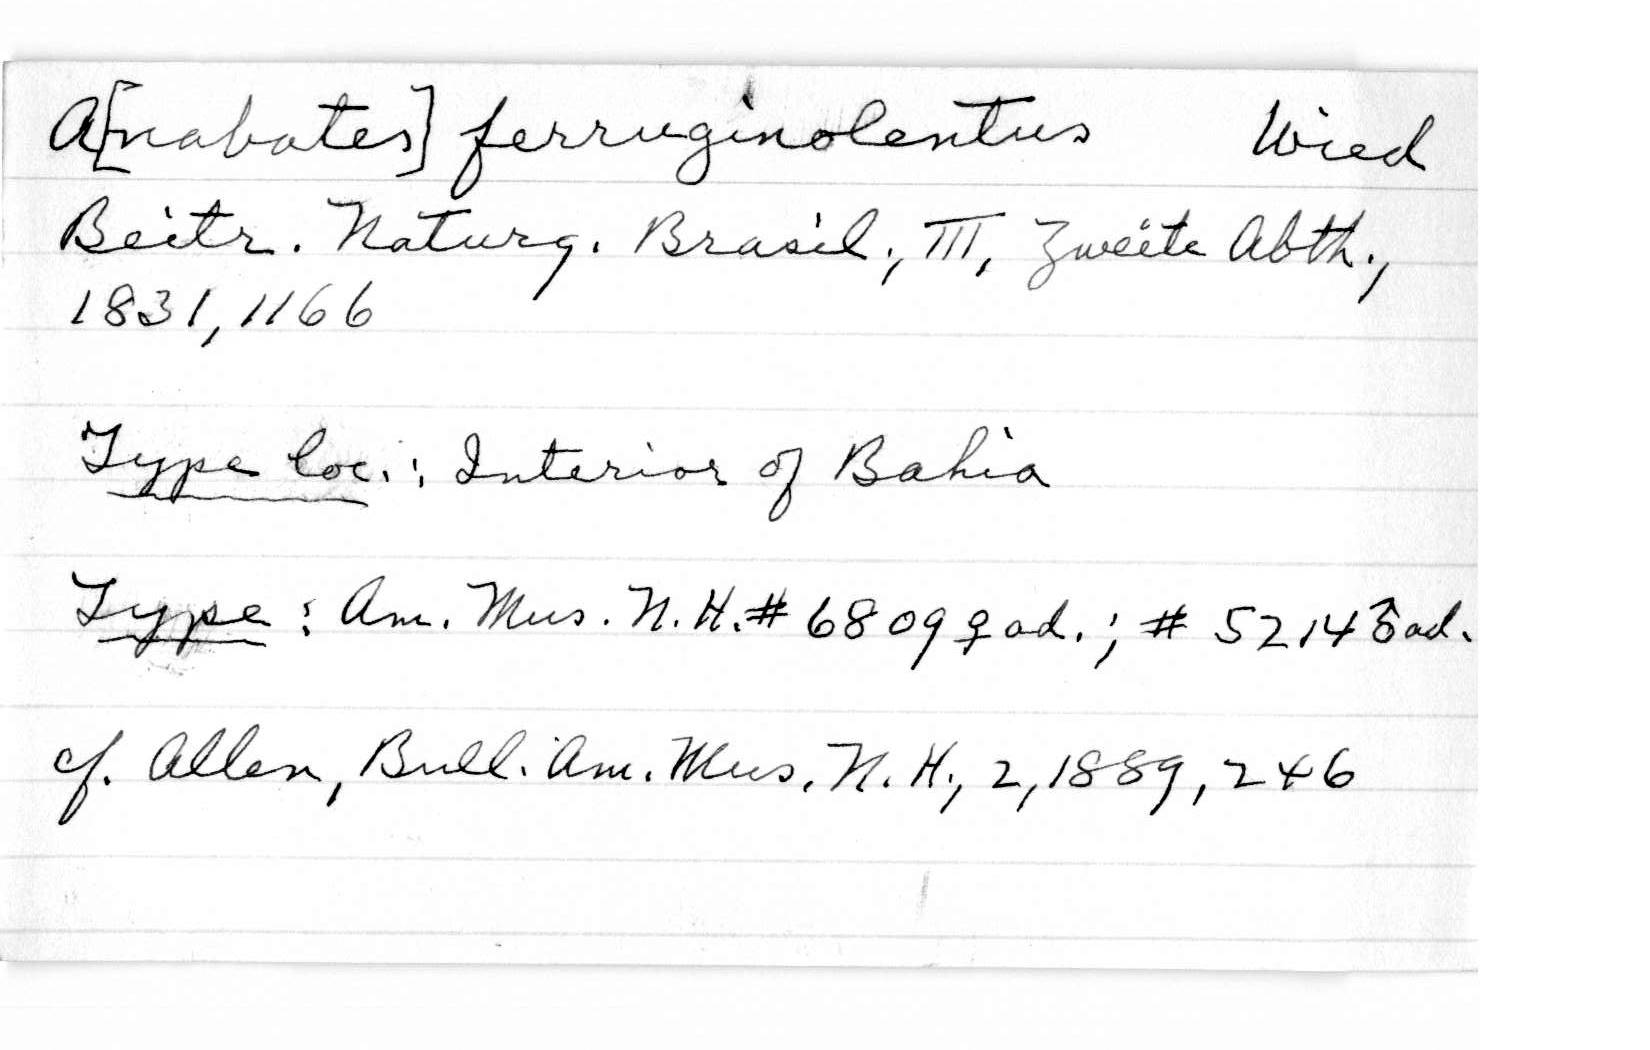 A[nabates] ferruginolentus Wied
Beitr. Naturg. Brasil., III, Zweite Abth.,
1831, 1166
Type loc.: Interior of Bahia
Type: Am. Mus. N.H. # 6809 ♀ ad.; # 5214 ♂ ad.
cf. Allen, Bull. Am. Mus. N.H., 2, 1889, 246